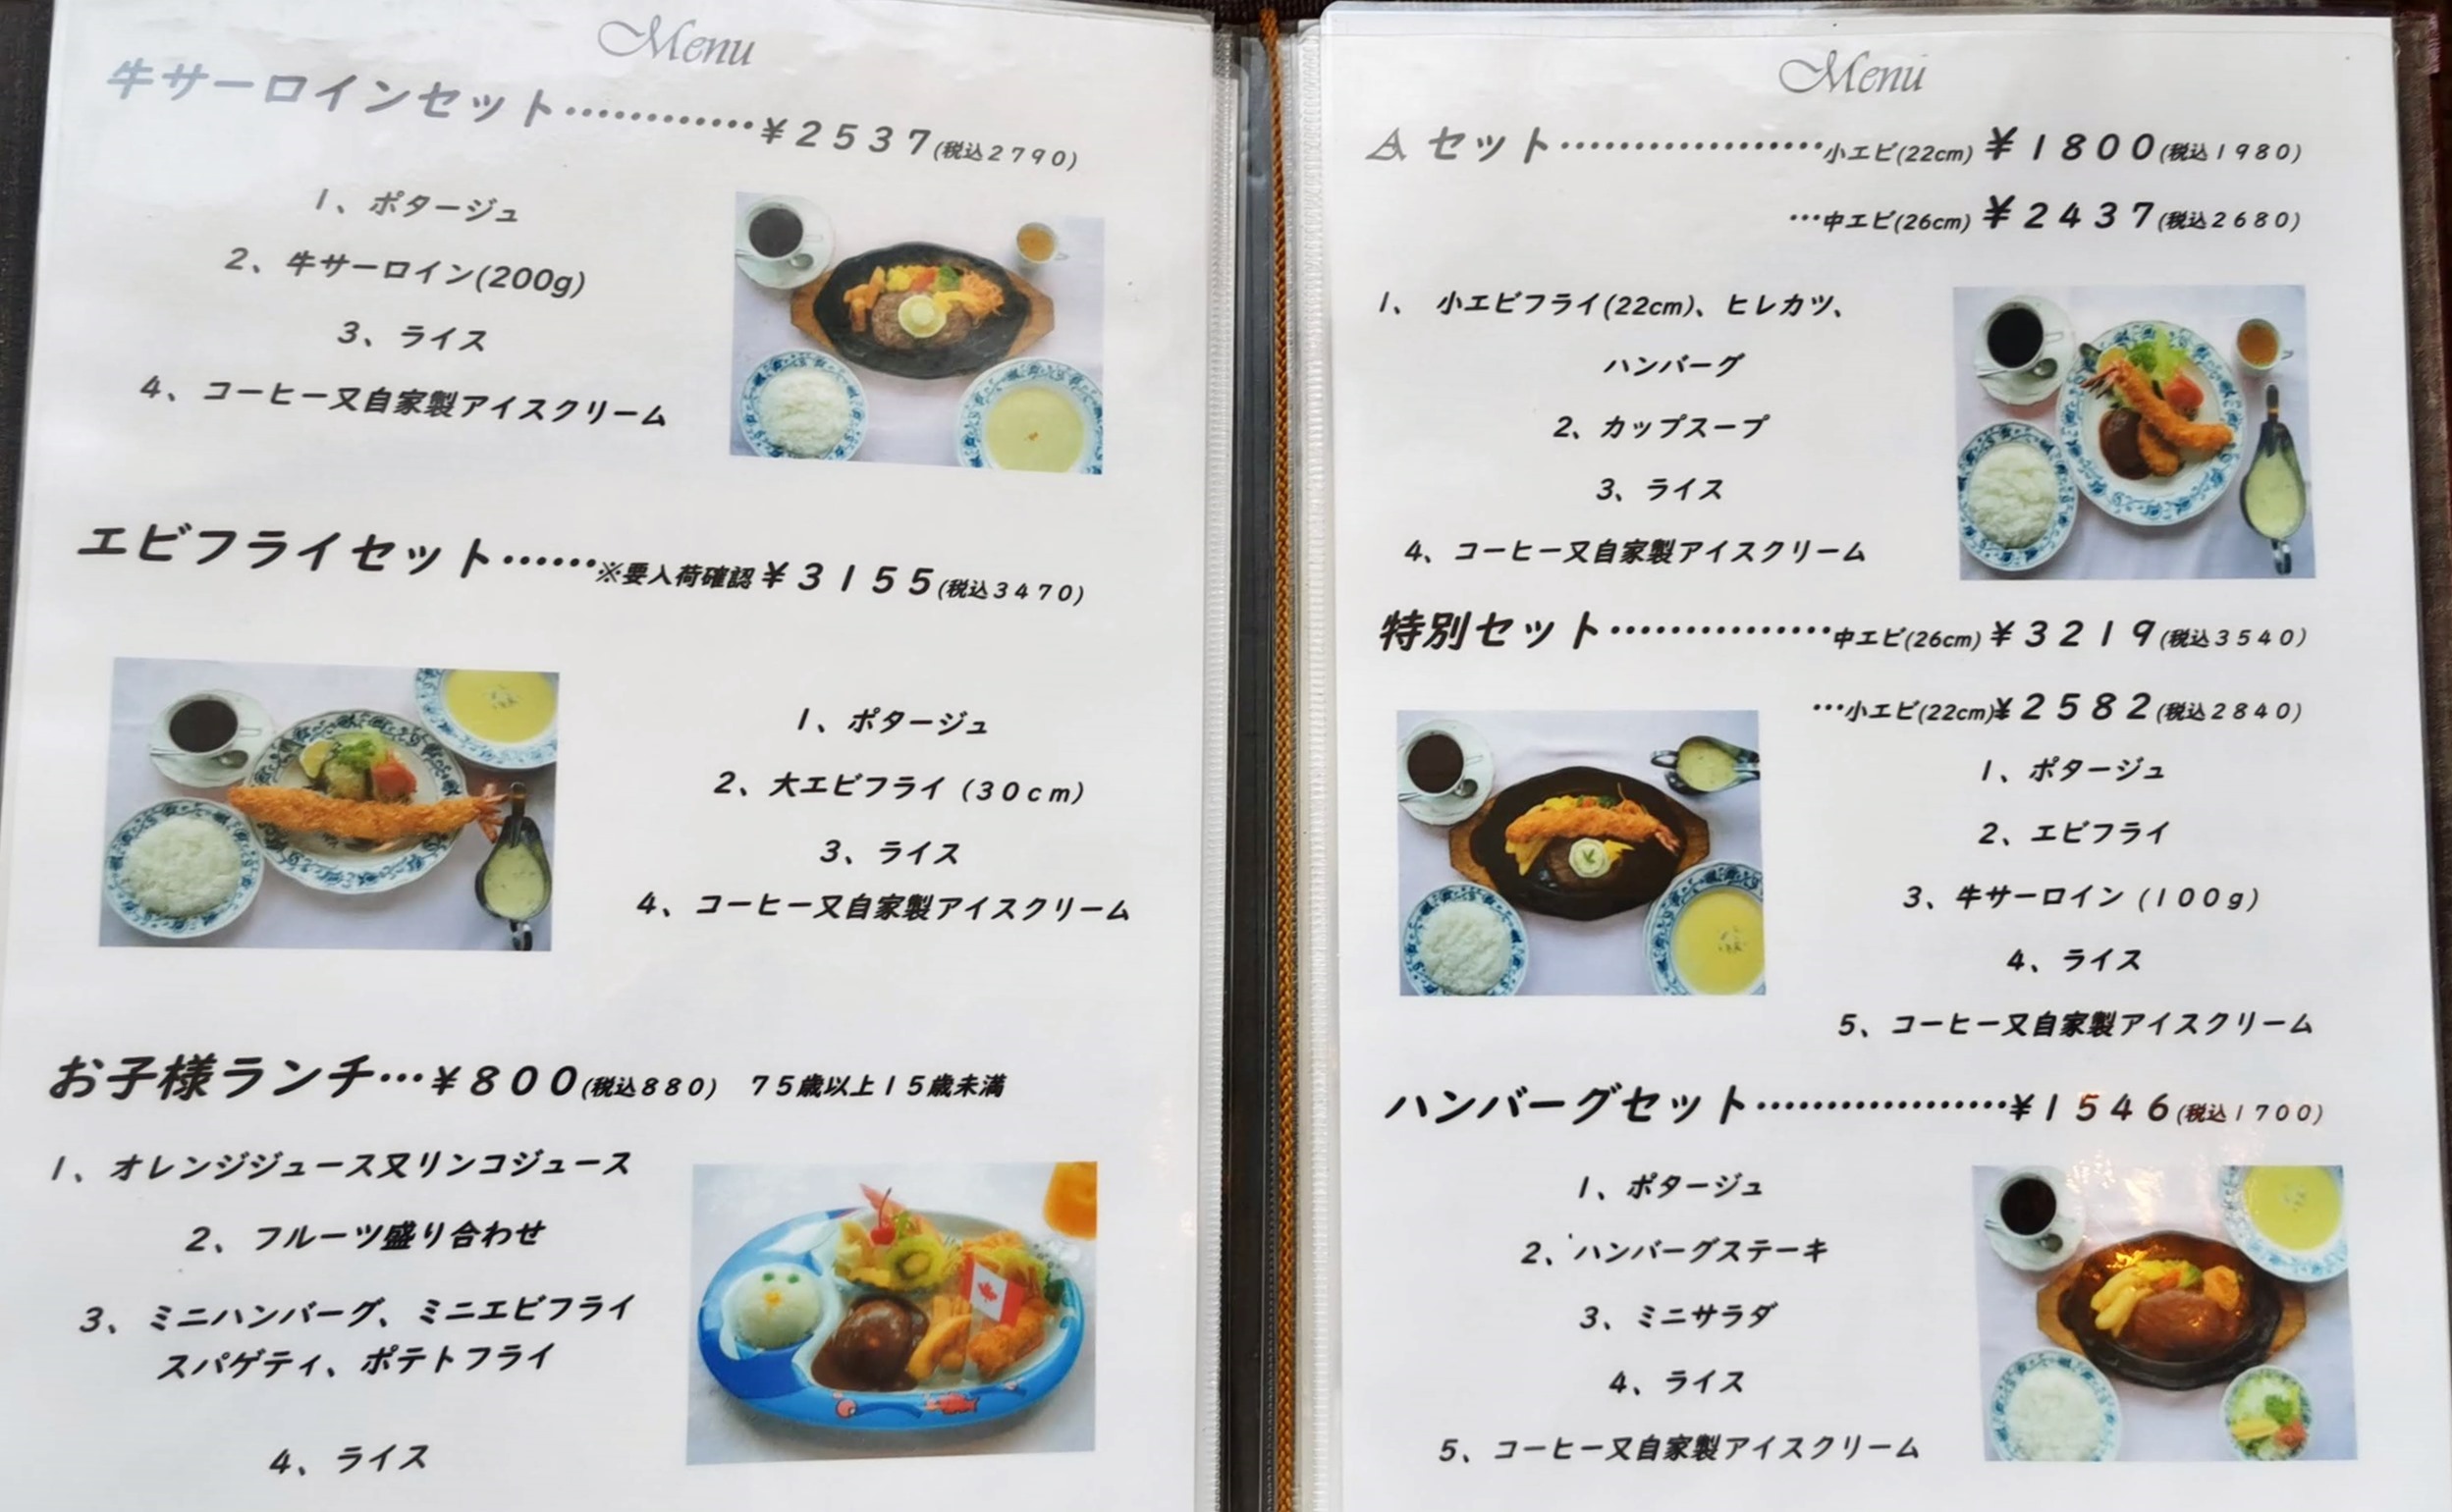 Menu
牛サーロインセット…………¥2537(税込2790)
1、ポタージュ
2、牛サーロイン(200g)
3、ライス
4、コーヒー又自家製アイスクリーム
エビフライセット……※要入荷確認¥3155(税込3470)
1、ポタージュ
2、大エビフライ(30cm)
3、ライス
4、コーヒー又自家製アイスクリーム
お子様ランチ…¥800(税込880) 75歳以上15歳未満
1、オレンジジュース又リンコジュース
2、フルーツ盛り合わせ
3、ミニハンバーグ、ミニエビフライ
スパゲティ、ポテトフライ
4、ライス
Menu
Aセット………………小エビ(22cm)¥1800(税込1980)
…中エビ(26cm)¥2437(税込2680)
1、 小エビフライ(22cm)、ヒレカツ、
ハンバーグ
2、カップスープ
3、ライス
4、コーヒー又自家製アイスクリーム
特別セット……………中エビ(26cm)¥3219(税込3540)
…小エビ(22cm)¥2582(税込2840)
1、ポタージュ
2、エビフライ
3、牛サーロイン(100g)
4、ライス
5、コーヒー又自家製アイスクリーム
ハンバーグセット………………¥1546(税込1700)
1、ポタージュ
2、ハンバーグステーキ
3、ミニサラダ
4、ライス
5、コーヒー又自家製アイスクリーム